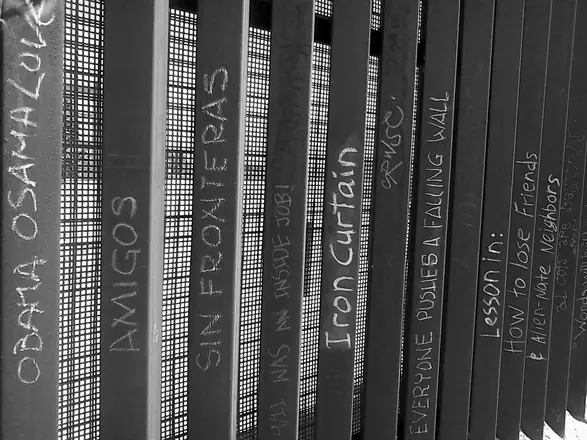 OBAMA OSAMA LUV
AMIGOS
SIN FRONTERAS
9/11 WAS AN INSIDE JOB!
Iron Curtain
EVERYONE PUSHES A FALLING WALL
Lesson in:
How to lose Friends
& Alien-Nate Neighbors